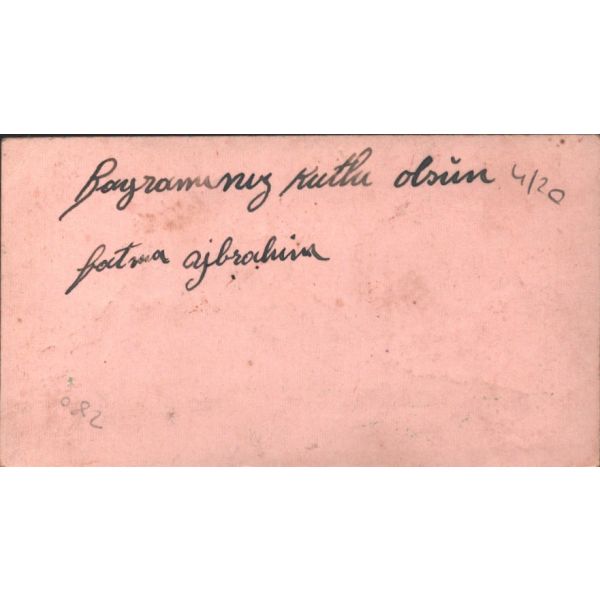 Bayramınız kutlu olsun 4/20
Fatma ajbrahim
082